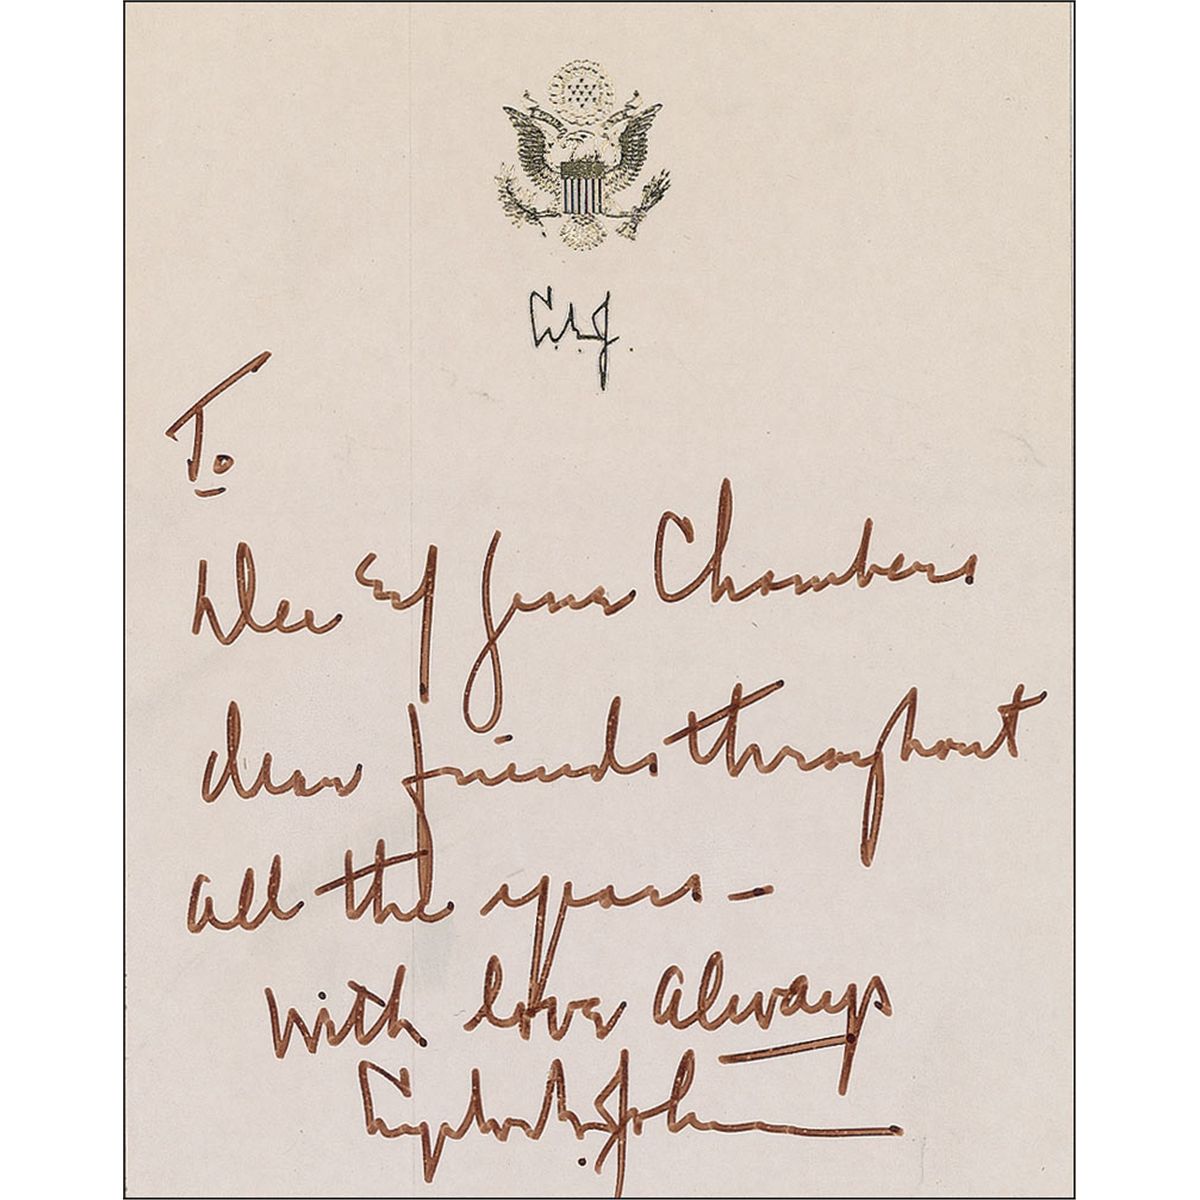 L.B.J.
To
Dee & Gene Chambers
dear friends throughout
all the years -
with love always
Lyndon B. Johnson